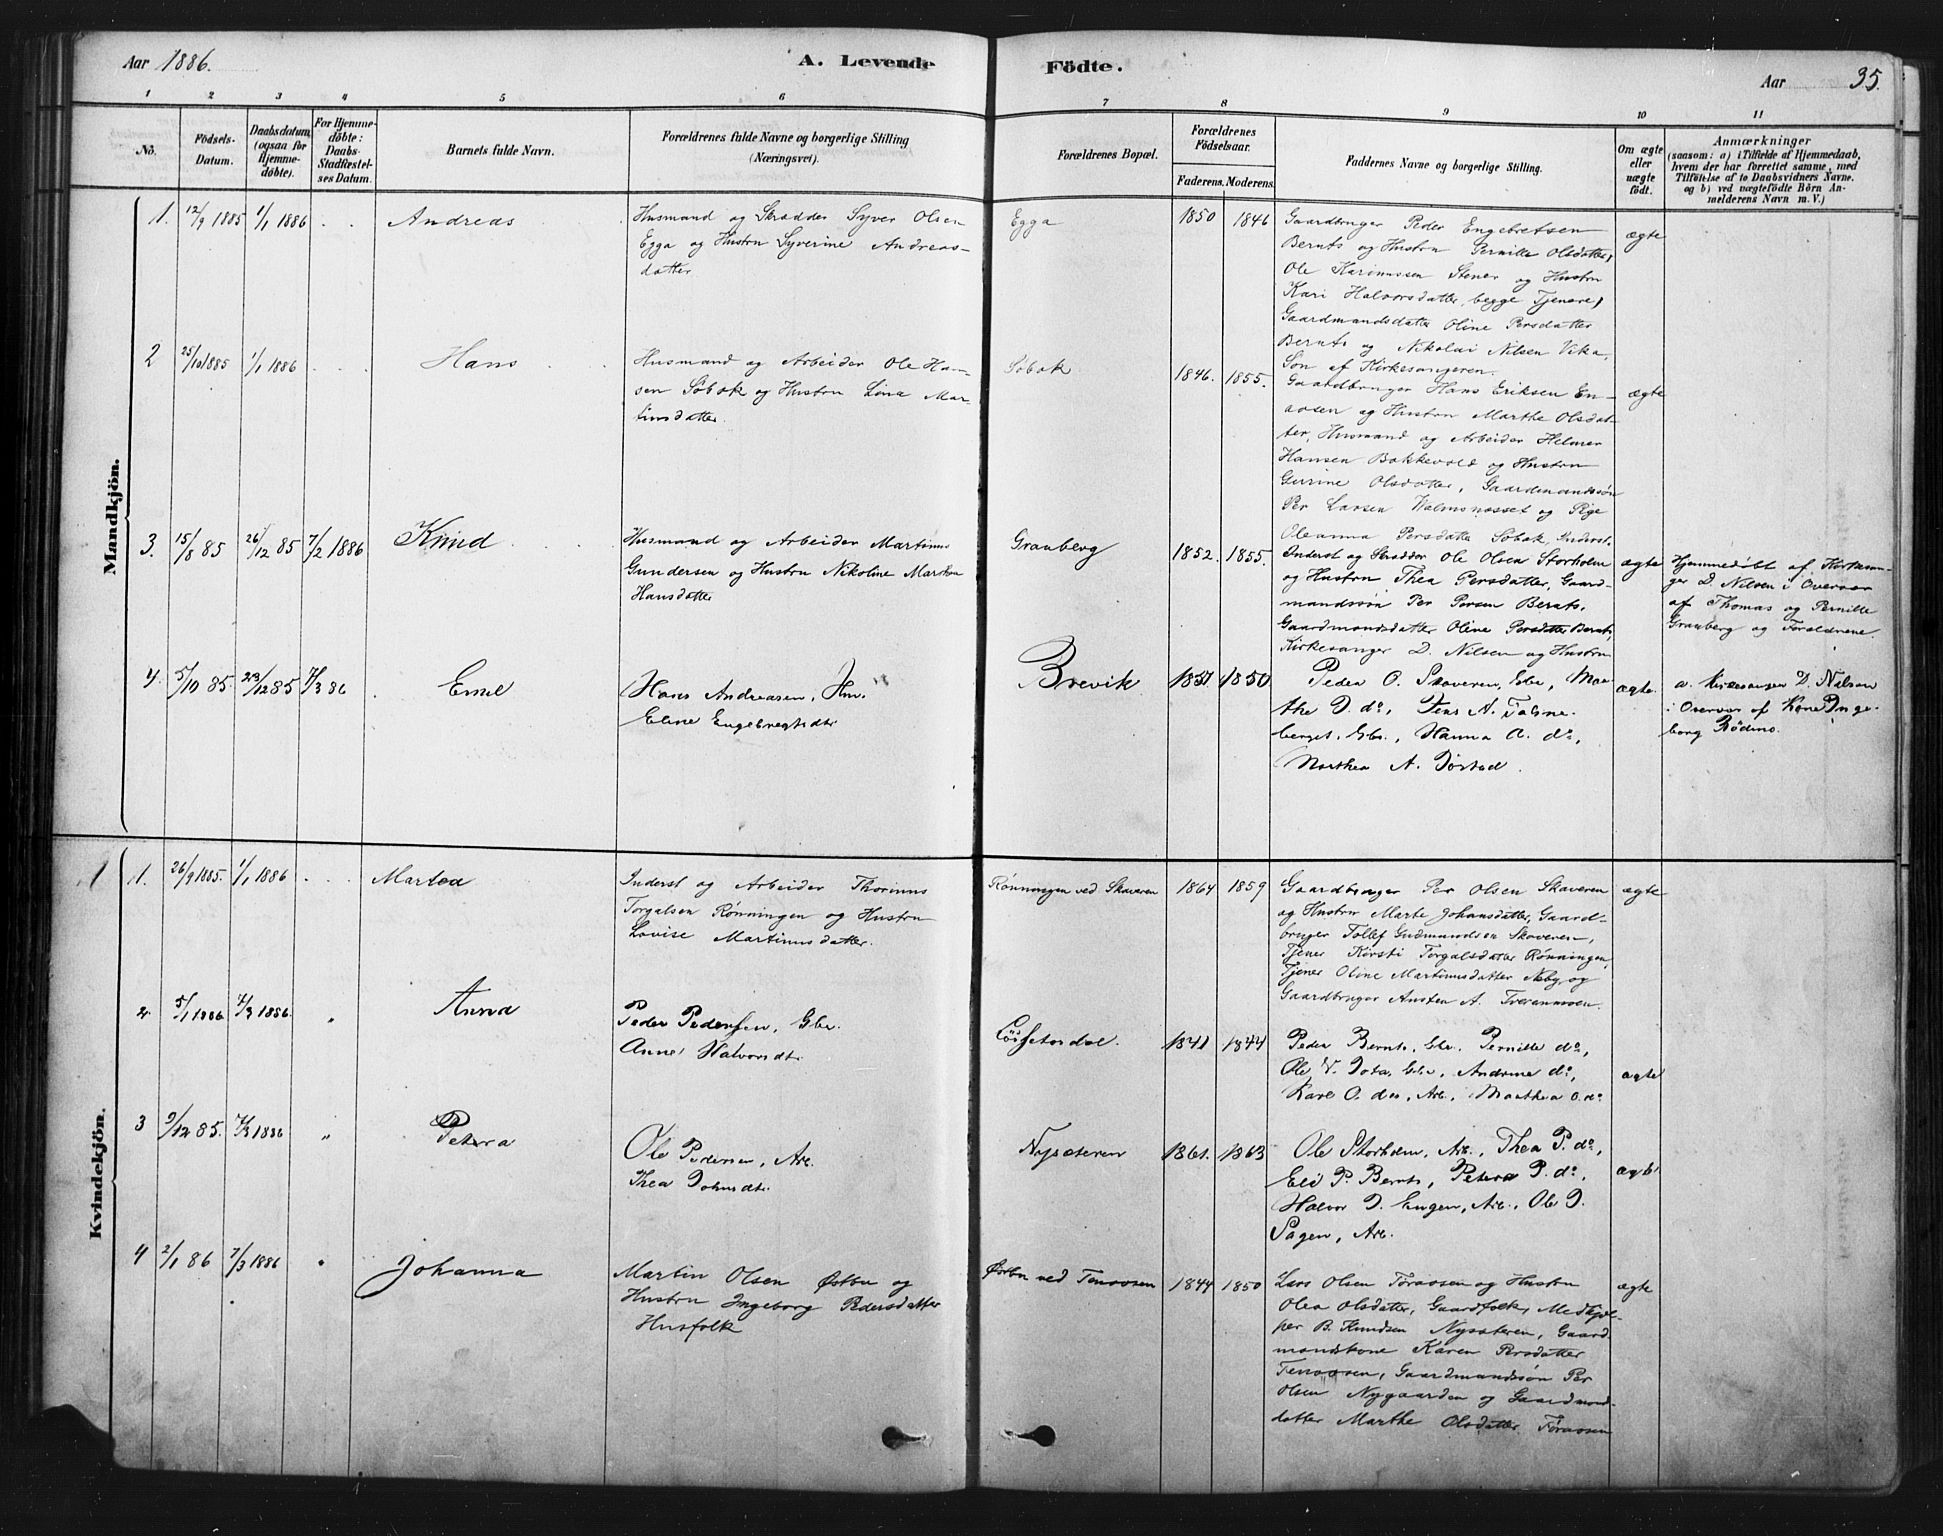 Aar 1886. A. Levende Födte. Aar 35.
1 2 3 4 5 6 7 8 9 10 11
No.
Födsels-
Datum.
Daabsdatum
(ogsaa for
Hjemme-
döbte).
For Hjemme-
döbte:
Daabs-
Stadfæstel-
ses Datum.
Barnets fulde Navn.
Forældrenes fulde Navne og borgerlige Stilling
(Næringsvei).
Forældrenes Bopæl.
Forældrenes
Födselsaar.
Faderens. Moderens.
Faddernes Navne og borgerlige Stilling.
Om ægte
eller
uægte
födt.
Anmærkninger
(saasom: a) i Tilfælde af Hjemmedaab,
hvem der har forrettet samme, med
Tilföielse af to Daabsvidners Navne,
og b) ved uægtefödte Börn An-
melderens Navn m. V.)
Mandkjön.
1. 12/9 1885 1/1 1886 Andreas
Husmand og Skrædder Syver Olsen
Egga og Hustru Syverine Andreas-
datter
Egga 1850 1846
Gaardbruger Peder Engebretsen
Bernts og Hustru Pernille Olsdatter,
Ole Karinussen Stener og Hustru
Kari Halvorsdatter, begge Tjenere,
Gaardmandsdatter Oline Persdatter
Bernts og Nikolai Nilsen Vika,
Søn af Kirkesangeren.
ægte
2 25/10 1885 1/1 1886 Hans
Husmand og Arbeider Ole Han-
sen Søbak og Hustru Lina Mar-
tinsdatter.
Søbak 1846. 1855.
Gaardbruger Hans Eriksen En-
aasen og Hustru Marthe Olsdat-
ter, Husmand og Arbeider Helmer
Hansen Bakkevold og Hustru
Gurine Olsdatter, Gaardmandssøn
Per Larsen Malmnæsset og Pige
Oleanna Persdatter Søbak, Inderst.
ægte
3. 15/8 85 26/12 85 7/2 1886 Knud
Husmand og Arbeider Martinus
Gundersen og Hustru Nikoline Marthea
Hansdatter
Granberg 1852. 1855.
Inderst og Skrædder Ole Olsen Storholm
og Hustru Thea Persdatter, Gaard-
mandssøn Per Persen Bernts,
Gaardmandsdatter Oline Persdatter Bernts,
Kirkesanger D. Nilsen og Hustru
ægte
Hjemmedøbt af Kirkesan-
ger D. Nilsen i Overvær
af Thomas og Pernille
Granberg og Forældrene.
4. 5/10 85. 23/12 85 7/3 86 Emil
Hans Andreasen, Hm.
Eline Engebregtsdtr
Brevik 1851. 1850.
Peder O. Skaveren, Gbr., Mar-
the D. do, Jens A.
berget. Gbr., Hanna A. do,
Marthea A. Dørstad.
ægte.
a. Kirkesanger D. Nilsen
i Overvær af Kone Inge-
borg Rødmo.
Kvindekjön.
1. 26/9 1885. 1/1 1886 Martea
Inderst og Arbeider Thorinus
Torgalsen Rønningen og Hustru
Lovise Martinusdatter.
Rønningen ved Skaveren 1864 1859
Gaardbruger Per Olsen Skaveren
og Hustru Marte Johansdatter, Gaard-
bruger Tollef Gudmundsen Skaveren,
Tjener Kirsti Torgalsdatter Rønningen,
Tjener Oline Martinusdatter Næby, og
Gaardbruger Austen A. Tveranmoen.
ægte
2. 5/1 1886 7/3 1886. " Anna
Peder Pedersen, Gbr.
Anne Halvorsdt.
Løssetsdal. 1841 1844
Peder Bernts, Gbr. Pernille do,
Ole V. Gbr., Andrine do,
Kare O. do, Arb., Marthea O. do
ægte
3 9/12 85. 7/3 1886 " Petera
Ole Pedersen, Arb.
Thea Johnsdt.
Nysæteren 1861. 1863
Ole Storholm, Arb., Thea P. do,
Eli P. Bernts, Petera P. do,
Halvor D. Engen, Arb., Ole D.
Sagen, Arb.
ægte
4 2/1 86 7/3 1886 " Johanna
Martin Olsen Østbu og
Hustru Ingeborg Pedersdatter
Husfolk
Østbu ved Tenaasen 1844 1850
Lars Olsen Føraasen og Hustru
Olea Olsdatter, Gaardfolk, Medhjæl-
per B. Knudsen Nysæteren, Gaard-
mandskone Karen Persdatter
Tenaasen, Gaardmandssøn Per
Olsen Nygaarden og Gaardmands-
datter Marthe Olsdatter Føraasen
ægte